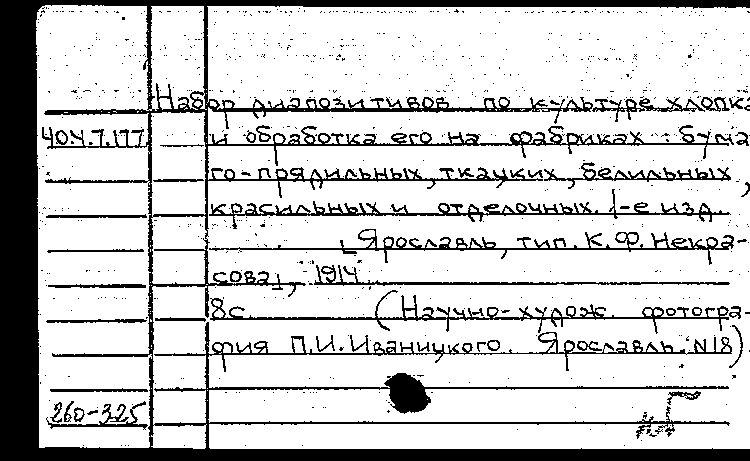 Набор диапозитивов по культуре хлопка
40.4.7.177 и обработка его на фабриках: бума
го-прядильных, ткацких, белильных,
красильных и отделочных. 1-е изд.
[Ярославль, тип. К.Ф. Некра-
сова], 1914.
8с. (Научно-худож. фотогра-
фия П.И. Иваницкого. Ярославль. N18)
260-325